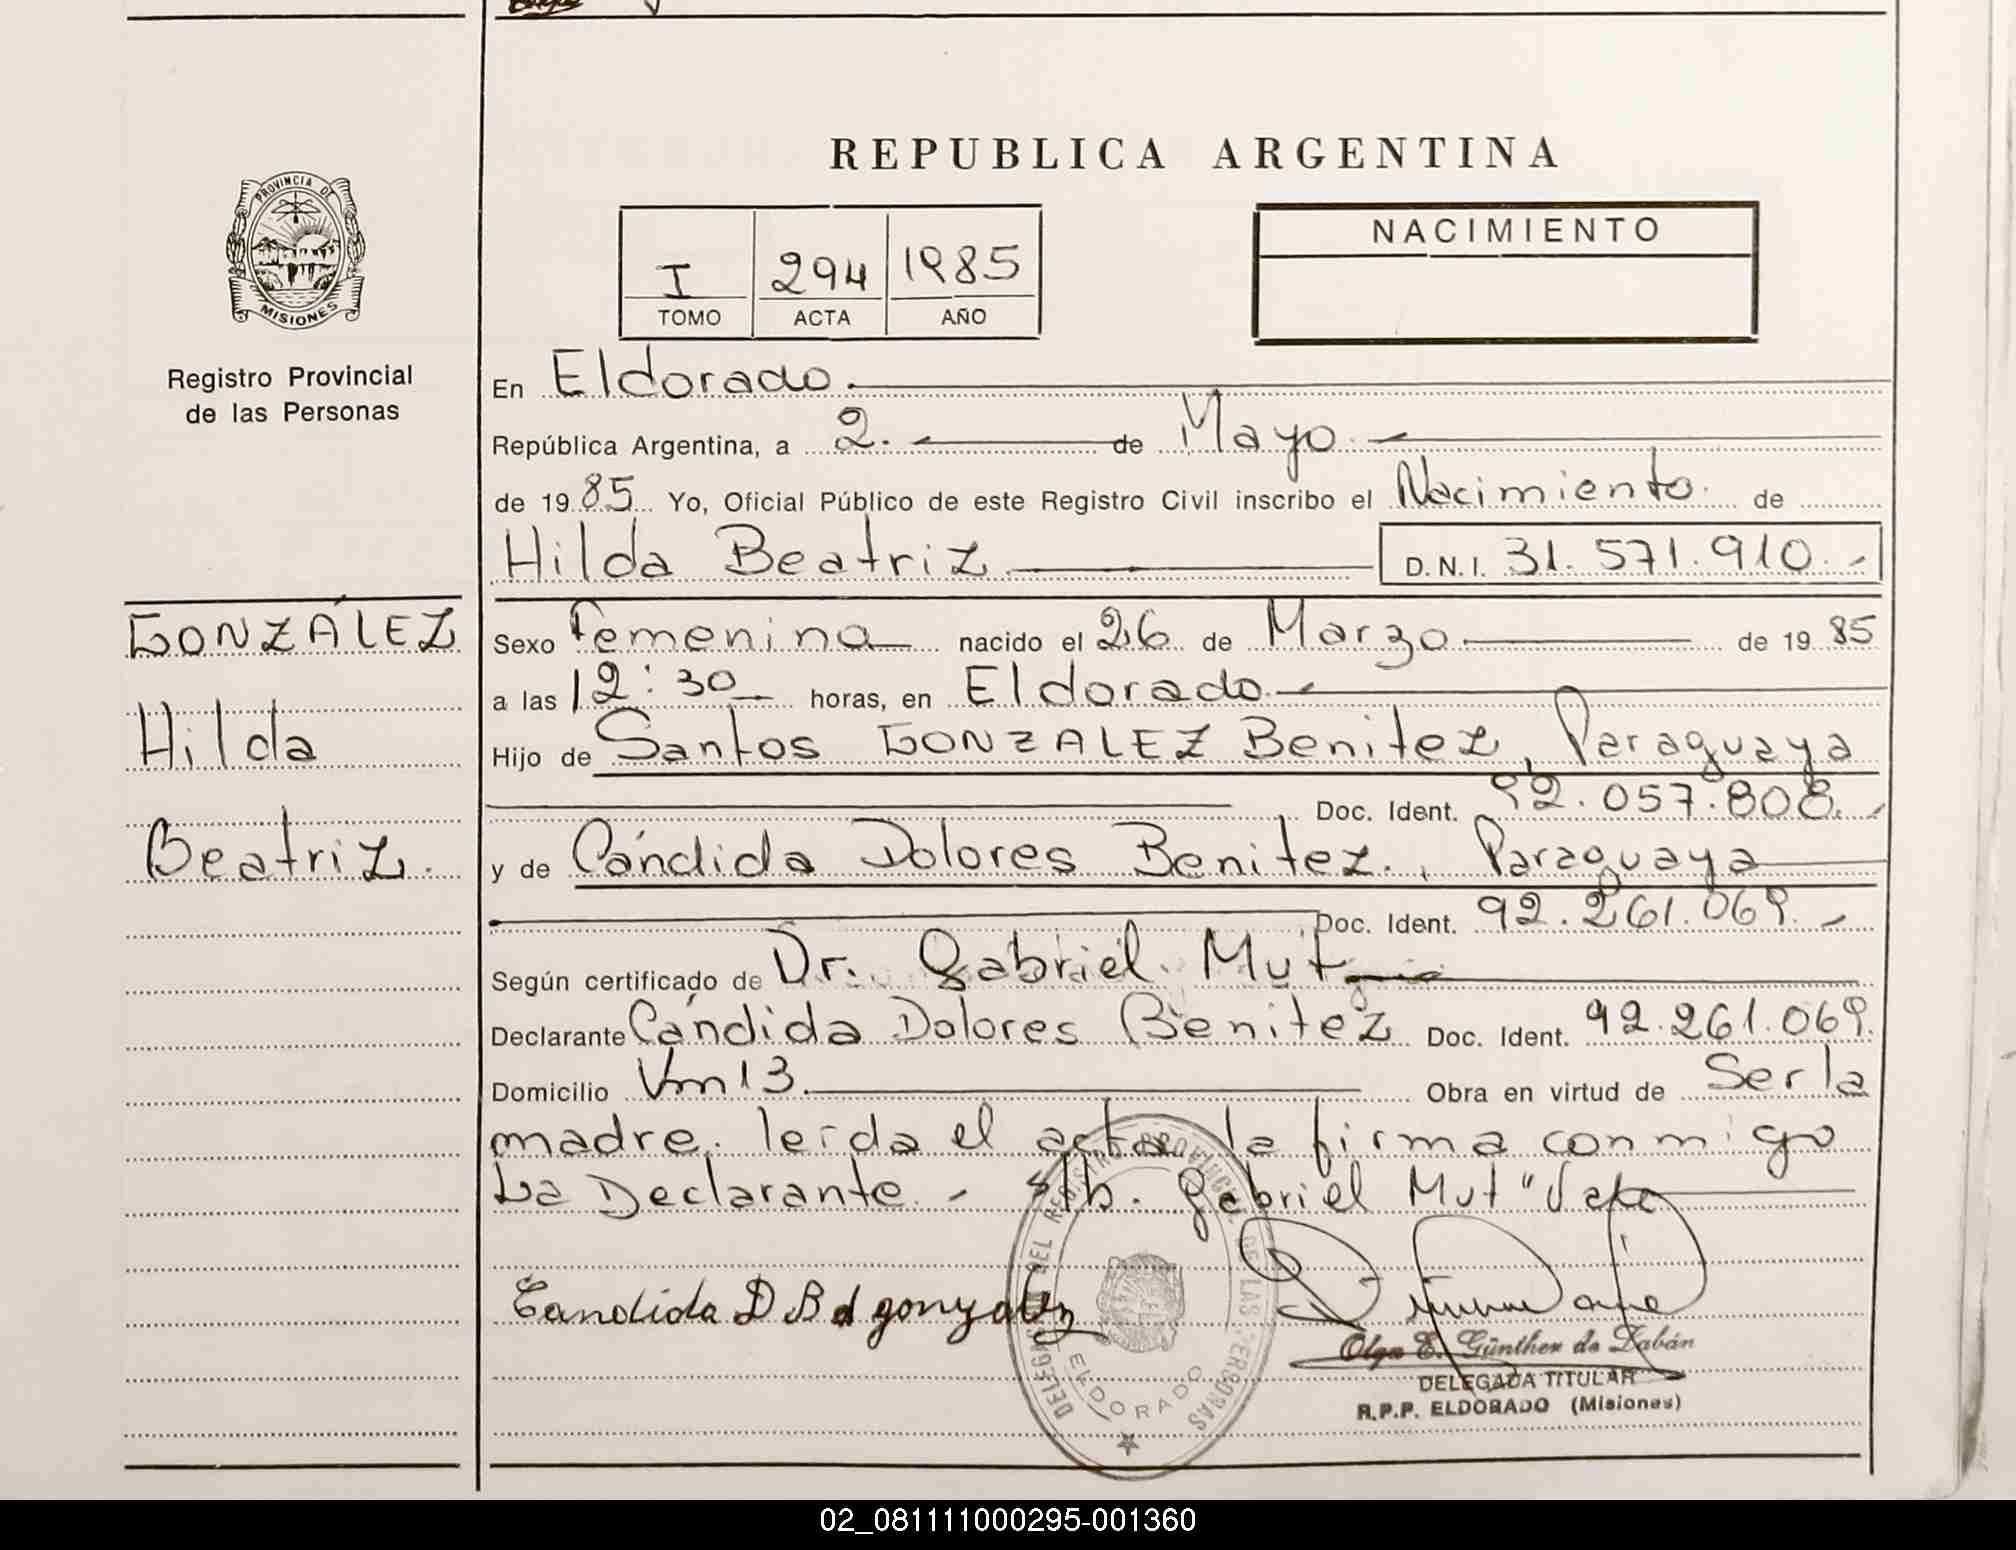 REPUBLICA ARGENTINA
PROVINCIA DE
MISIONES
Registro Provincial
de las Personas
I 294 1985
TOMO ACTA AÑO
NACIMIENTO
En Eldorado.
República Argentina, a 2. de Mayo.
de 1985 Yo, Oficial Público de este Registro Civil inscribo el Nacimiento. de
Hilda Beatriz D.N.I. 31.571.910.-
GONZÁLEZ
Hilda
Beatriz.
Sexo Femenina nacido el 26 de Marzo de 1985
a las 12:30 horas, en Eldorado.
Hijo de Santos GONZALEZ Benitez, Paraguaya
Doc. Ident. 92.057.808.-
y de Cándida Dolores Benitez., Paraguaya
Doc. Ident. 92.261.069.-
Según certificado de Dr. Gabriel Mut
Declarante Cándida Dolores Benitez Doc. Ident. 92.261.069.
Domicilio Km 13. Obra en virtud de Ser la
madre. leida el acta la firma conmigo
La Declarante.- Gabriel Mut "Vale
Candida D B d gonzalez
DELEGACION DEL REGISTRO PROVINCIAL DE LAS PERSONAS
ELDORADO
Olga E. Günther de Zabán
DELEGADA TITULAR
R.P.P. ELDORADO (Misiones)
02_081111000295-001360